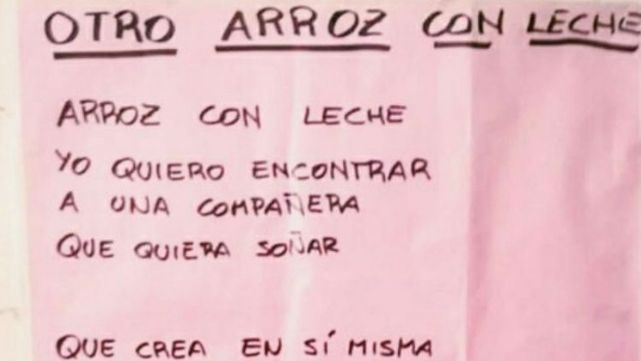 OTRO ARROZ CON LECHE
ARROZ CON LECHE
YO QUIERO ENCONTRAR
A UNA COMPAÑERA
QUE QUIERA SOÑAR
QUE CREA EN SÍ MISMA